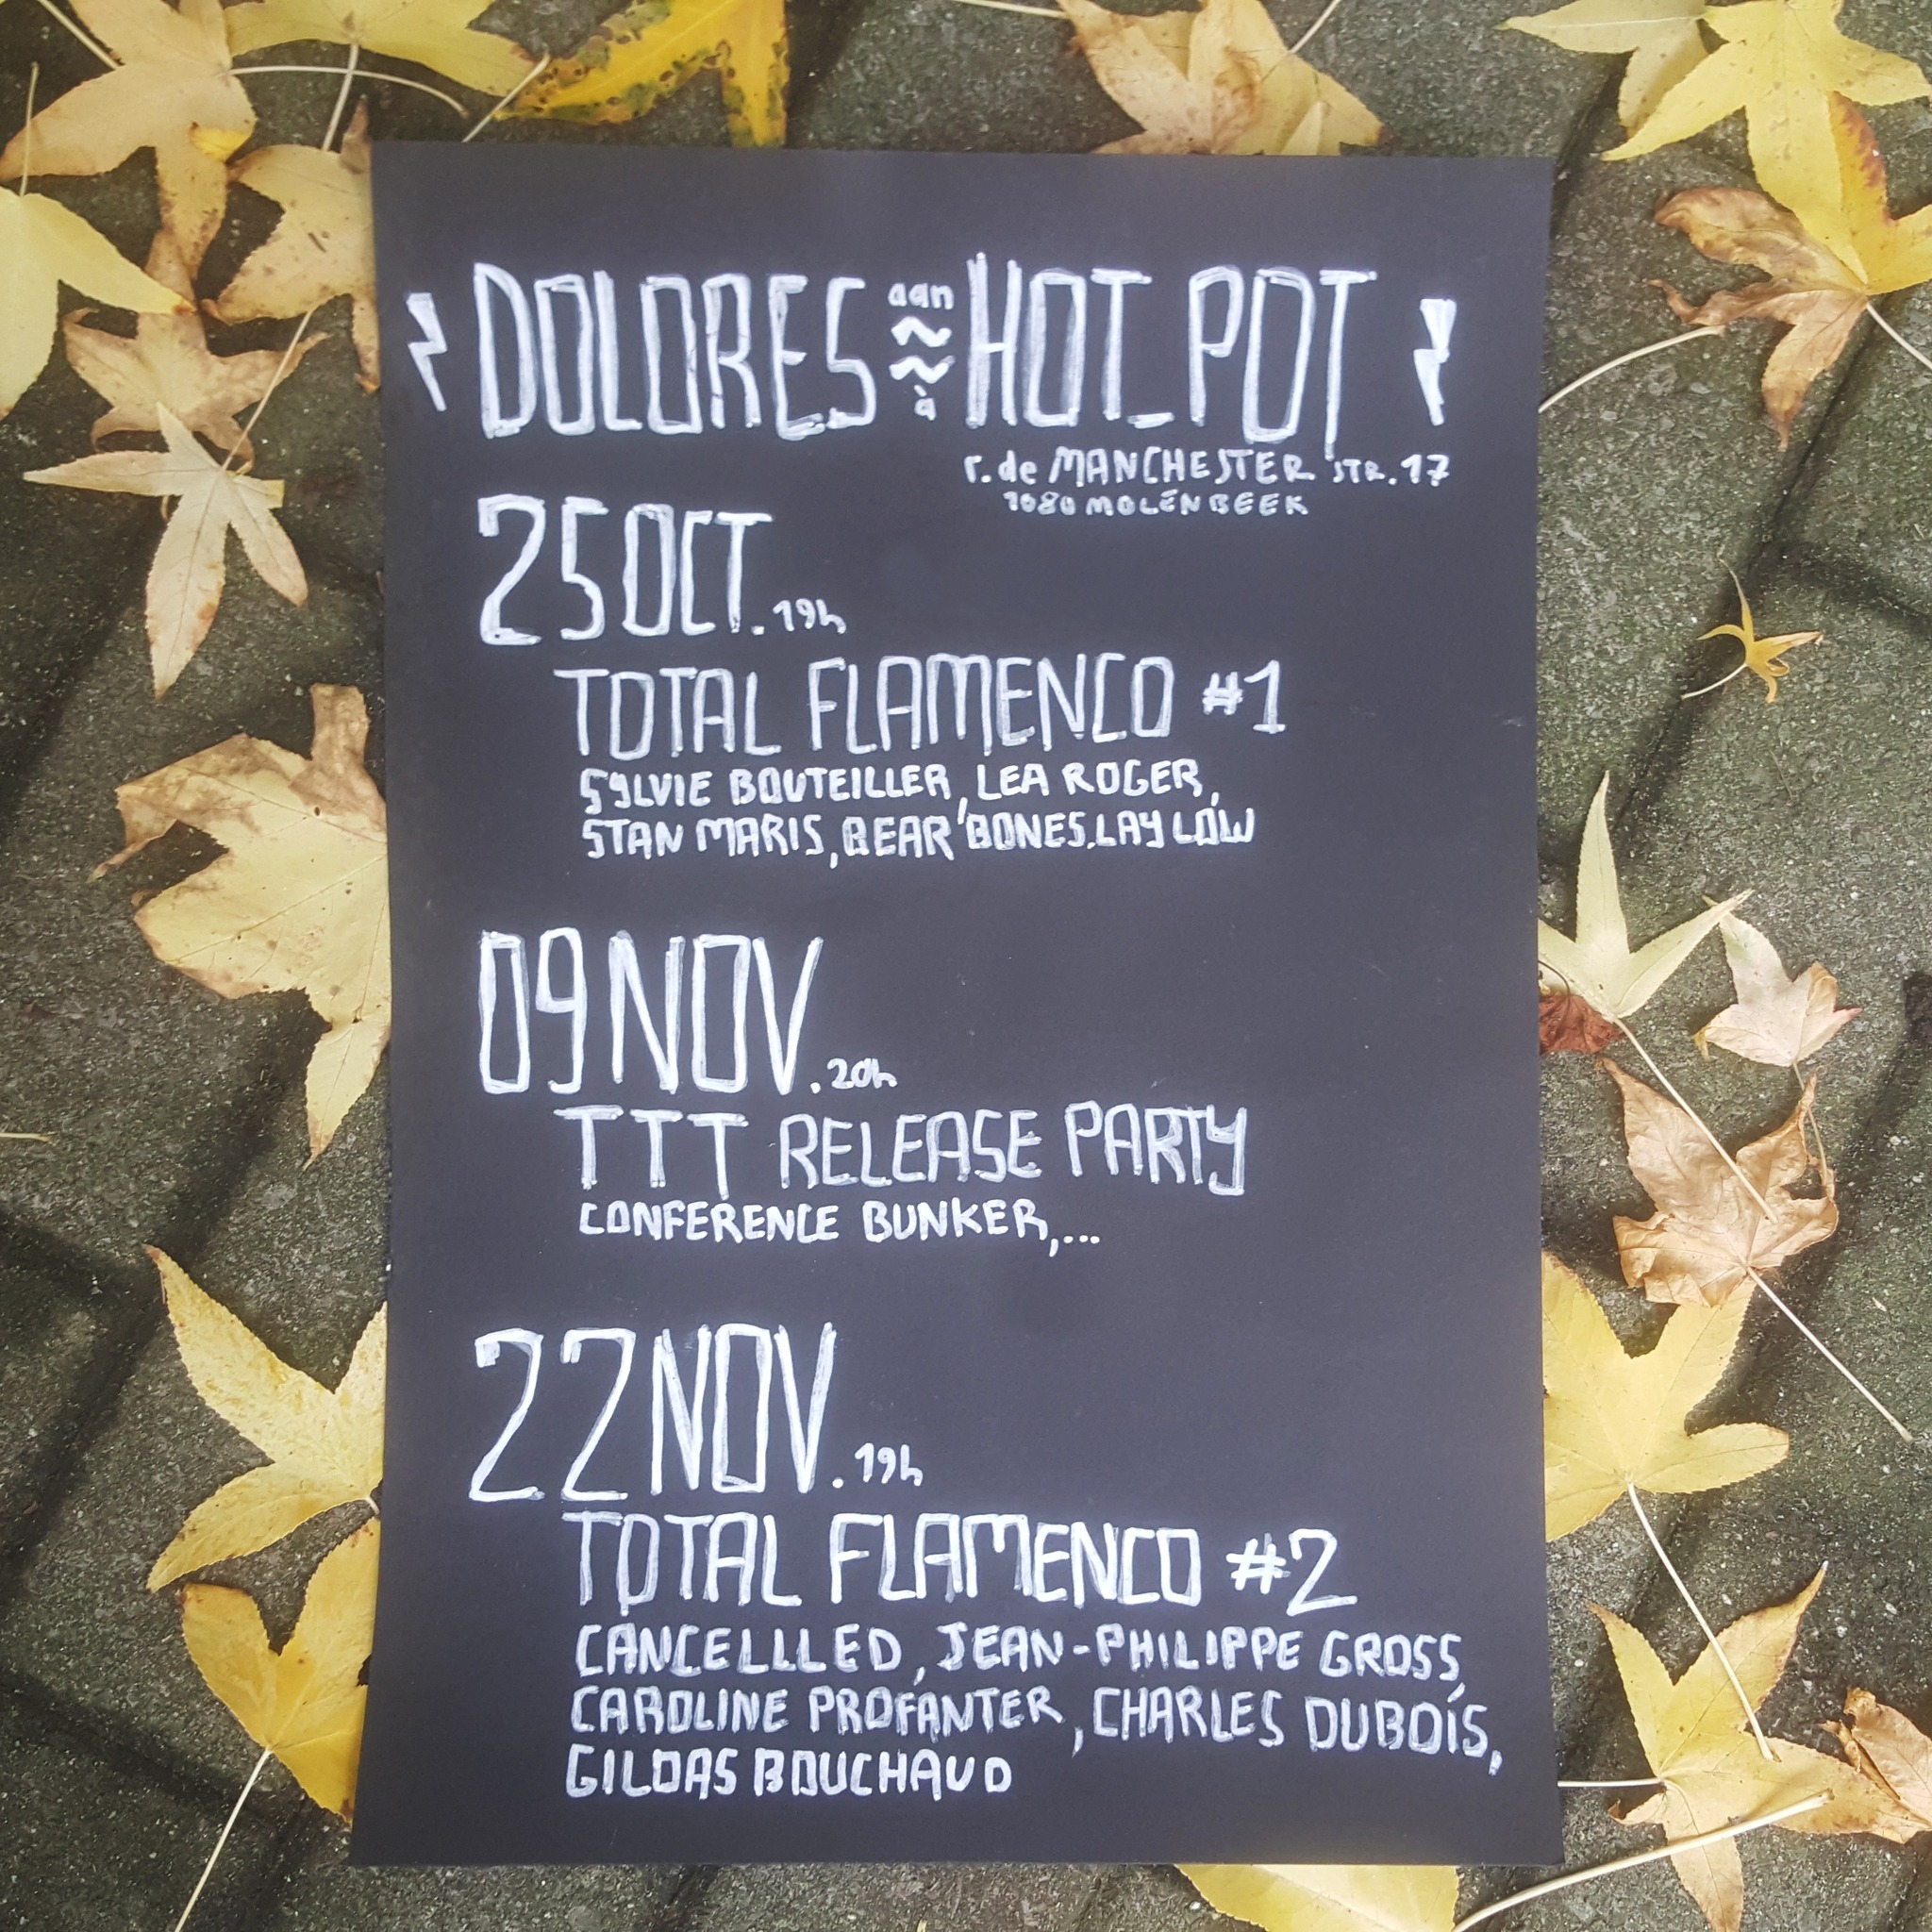 DOLORES aan à HOT_POT
r. de MANCHESTER STR. 17
1080 MOLENBEEK
25 OCT. 19h
TOTAL FLAMENCO #1
SYLVIE BOUTEILLER, LEA ROGER,
STAN MARIS, BEAR BONES, LAY LOW
09 NOV. 20h
TTT RELEASE PARTY
CONFERENCE BUNKER,...
22 NOV. 19h
TOTAL FLAMENCO #2
CANCELLLED, JEAN-PHILIPPE GROSS,
CAROLINE PROFANTER, CHARLES DUBOIS,
GILDAS BOUCHAUD